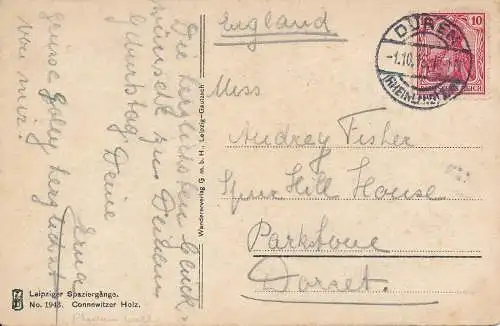 England
10
DÜREN
-1.10.
(RHEINLAND)
REICH
Miss
Audrey Fisher
Spur Hill House
Parkstone
Dorset.
Die herzlichsten Glück-
wünsche zu Deinem
Geburtstag Deine
Erna
grüsse herzlichst
von mir!
Wanderverlag G. m. b. H., Leipzig-Gautzsch
Leipziger Spaziergänge.
No. 1943. Connewitzer Holz.